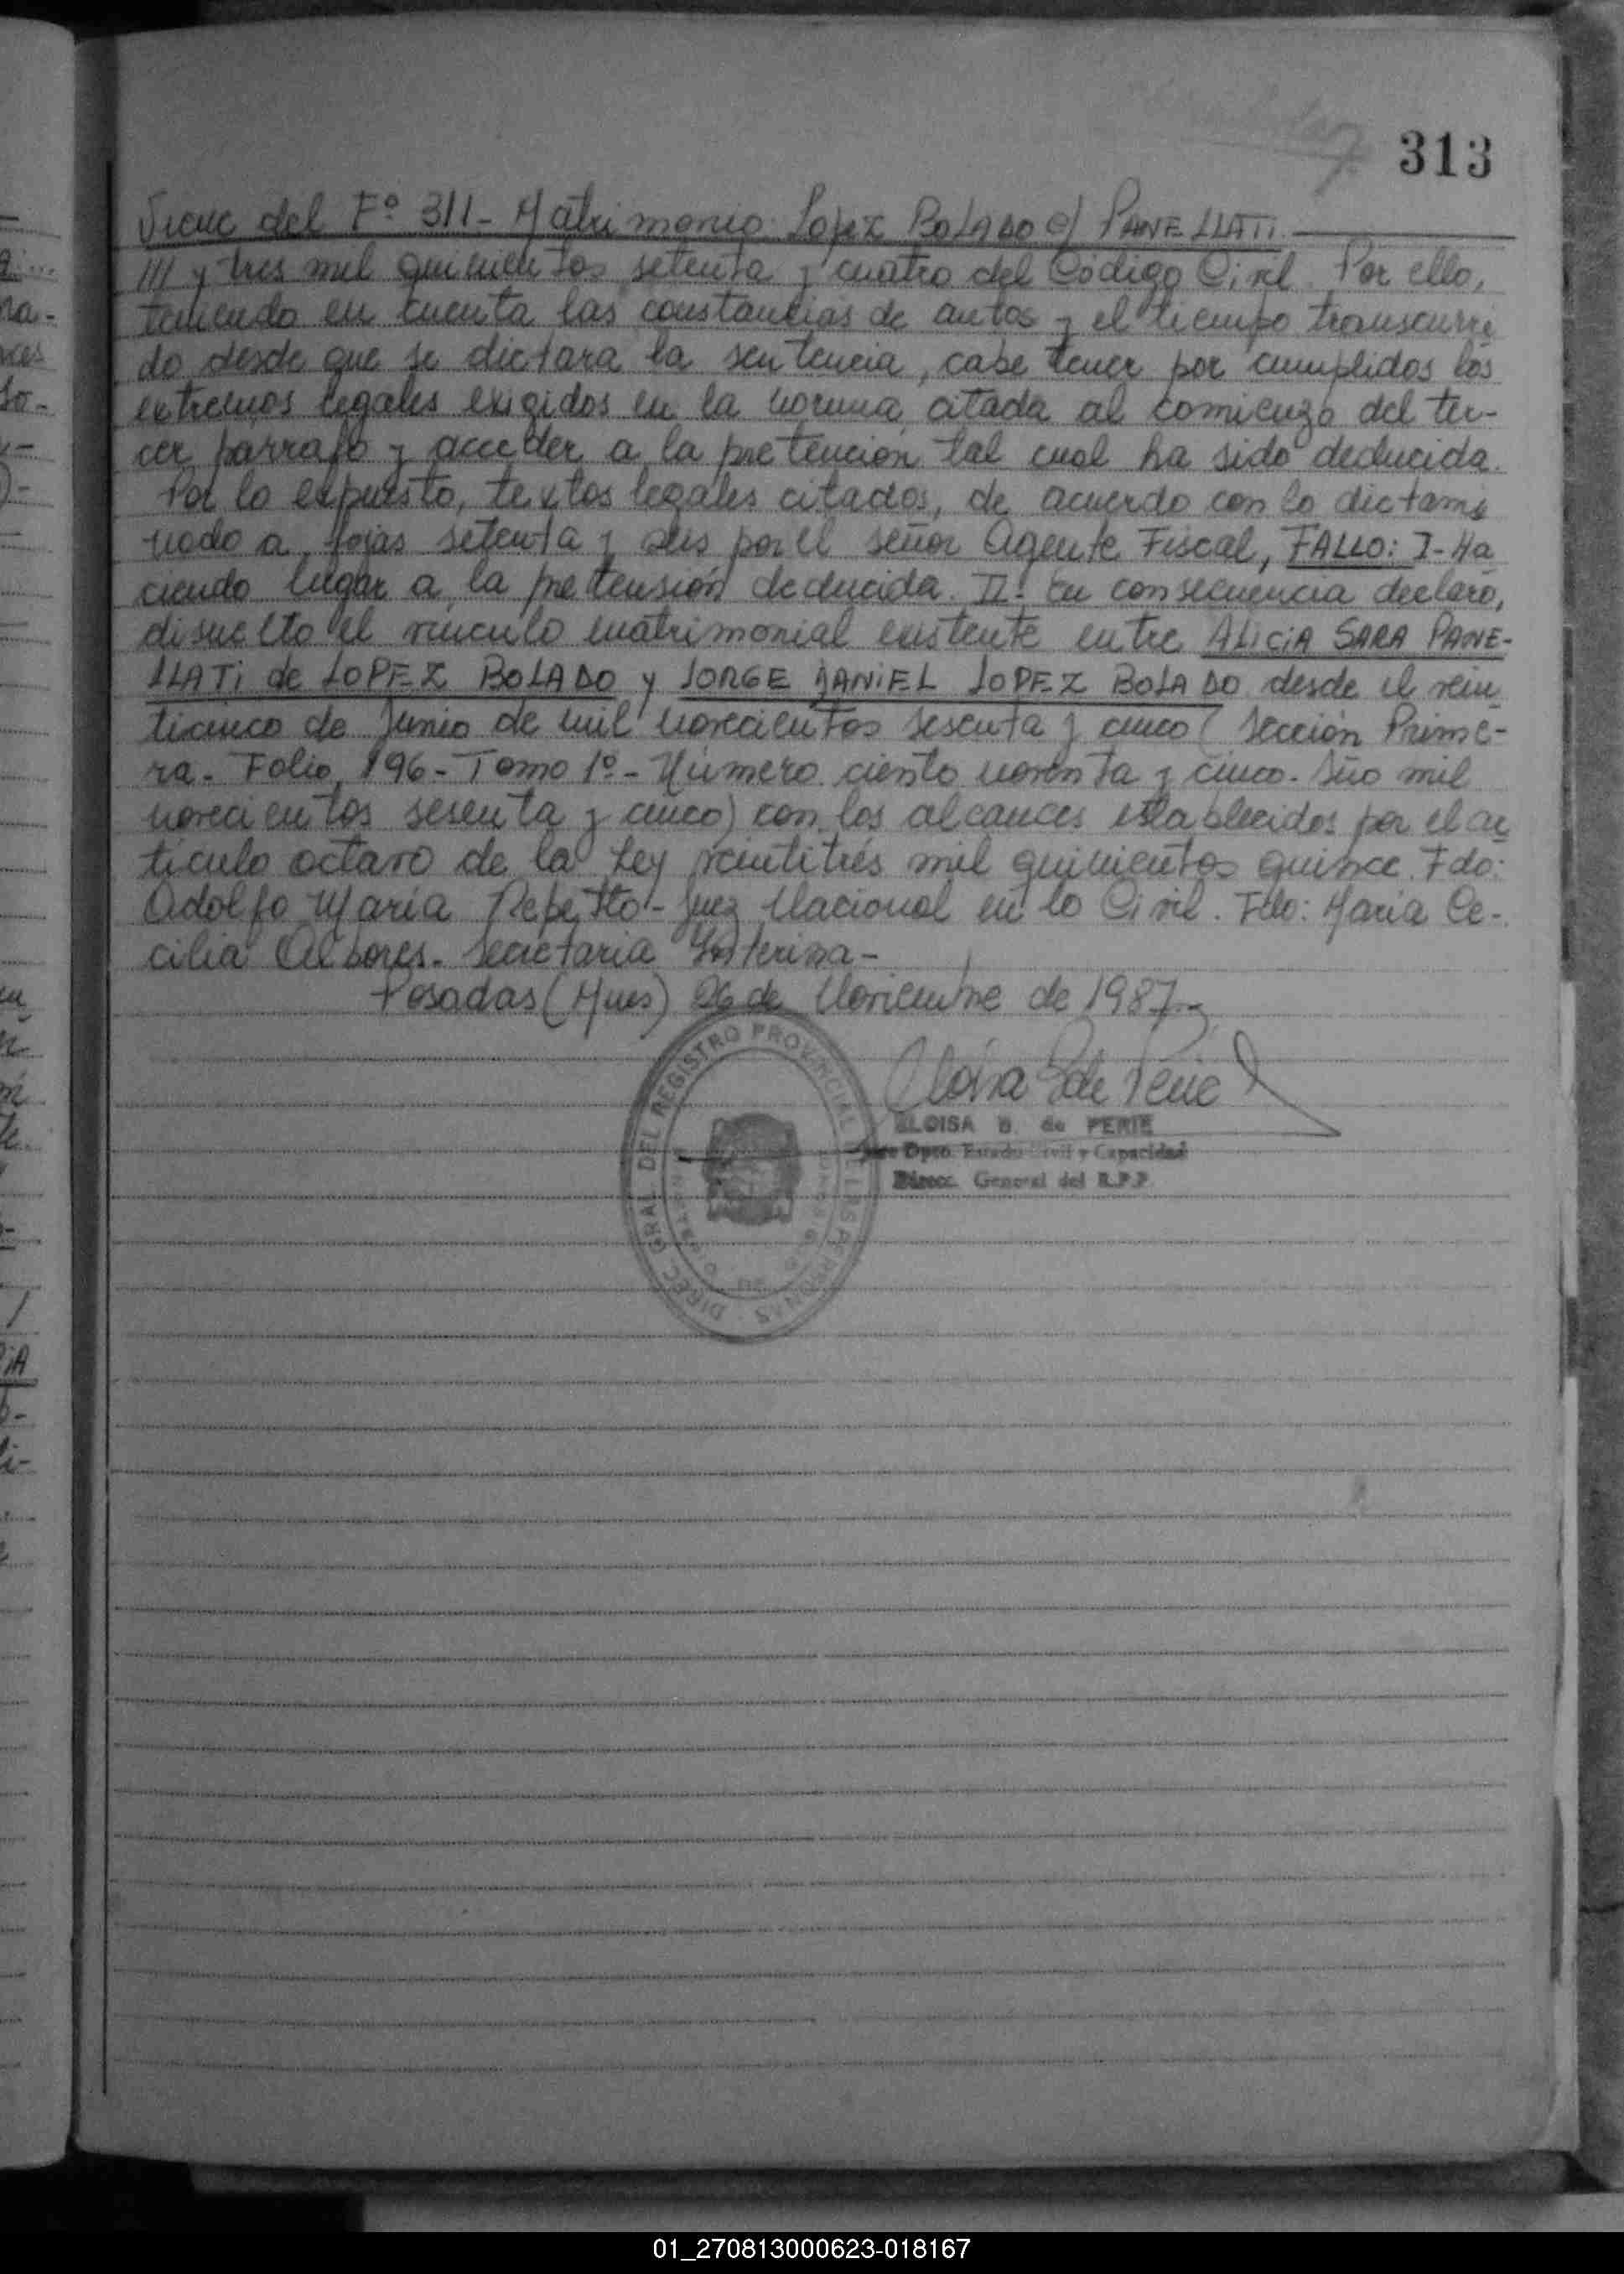 313
Viene del Fº 311- Matrimonio: Lopez BOLADO c/ PANELLATI.
/// y tres mil quinientos setenta y cuatro del Código Civil. Por ello,
teniendo en cuenta las constancias de autos y el tiempo transcurri
do desde que se dictara la sentencia, cabe tener por cumplidos los
extremos legales exigidos en la norma citada al comienzo del ter-
cer párrafo y acceder a la pretención tal cual ha sido deducida.
Por lo expuesto, textos legales citados, de acuerdo con lo dictami
nado a fojas setenta y seis por el señor Agente Fiscal, FALLO: I- Ha
ciendo lugar a la pretensión deducida. II- En consecuencia declaro,
disuelto el vinculo matrimonial existente entre ALICIA SARA PANE-
LLATI de LOPEZ BOLADO y JORGE DANIEL LOPEZ BOLADO desde el vein
ticinco de Junio de mil novecientos sesenta y cinco (Sección Prime-
ra- Folio 196- Tomo 1º- Número ciento noventa y cinco- Año mil
novecientos sesenta y cinco) con los alcances establecidos por el ar
tículo octavo de la Ley veintitrés mil quinientos quince. Fdo:
Adolfo María Repetto- Juez Nacional en lo Civil. Fdo: Maria Ce-
cilia Albores- Secretaria Interina-
Posadas (Mnes) 26 de Noviembre de 1987.-
DIREC. GRAL. DEL REGISTRO PROVINCIAL DE LAS PERSONAS
ELOISA B. de PERIE
Jefe Dpto. Estado Civil y Capacidad
Direcc. General del R.P.P.
01_270813000623-018167